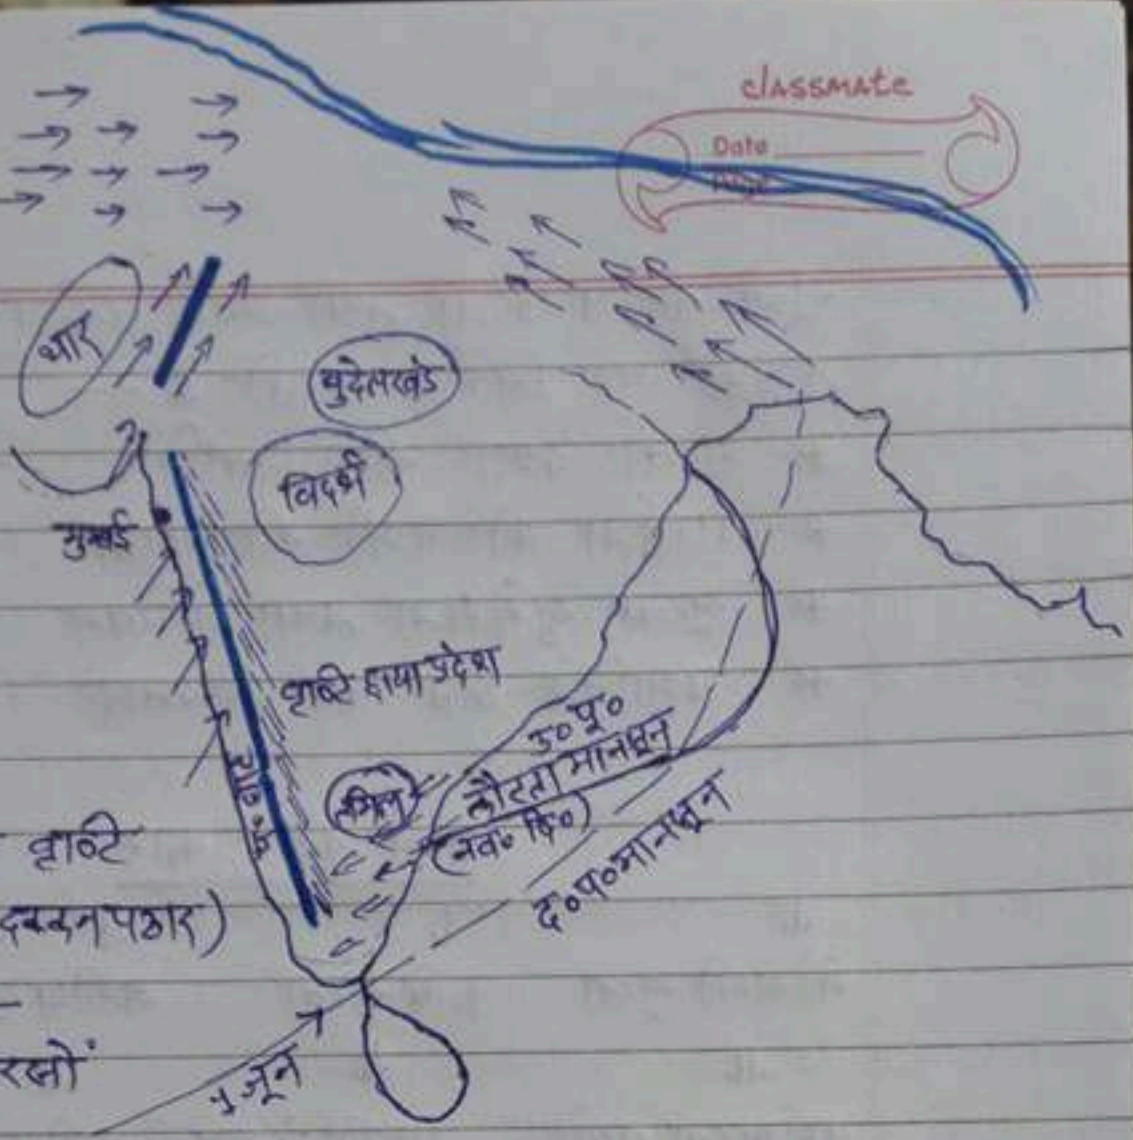 classmate
Date
Page
थार
बुदेलखंड
विदर्भ
मुम्बई
वृष्टि छाया प्रदेश
उ० पू०
लौटता मानसून
(नव० दि०)
तमिल
प० घाट
द० प० मानसून
वृष्टि
दक्कन पठार)
1 जून